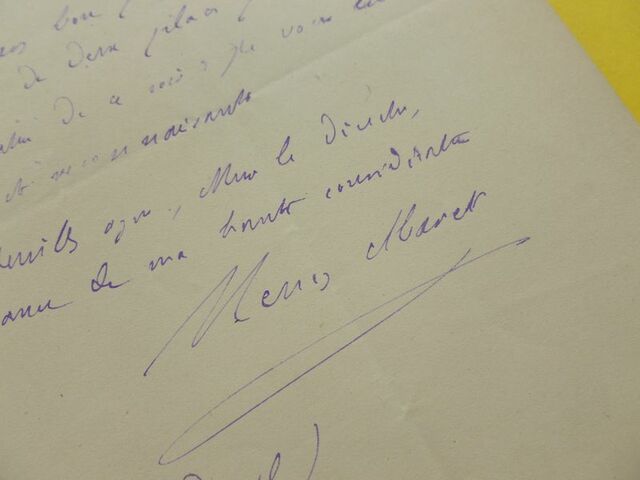 bon
de deux places
de ce mois je vous
et reconnaissant
Veuillez agréer, Mons le Directr,
de ma haute considération
Henry Maret